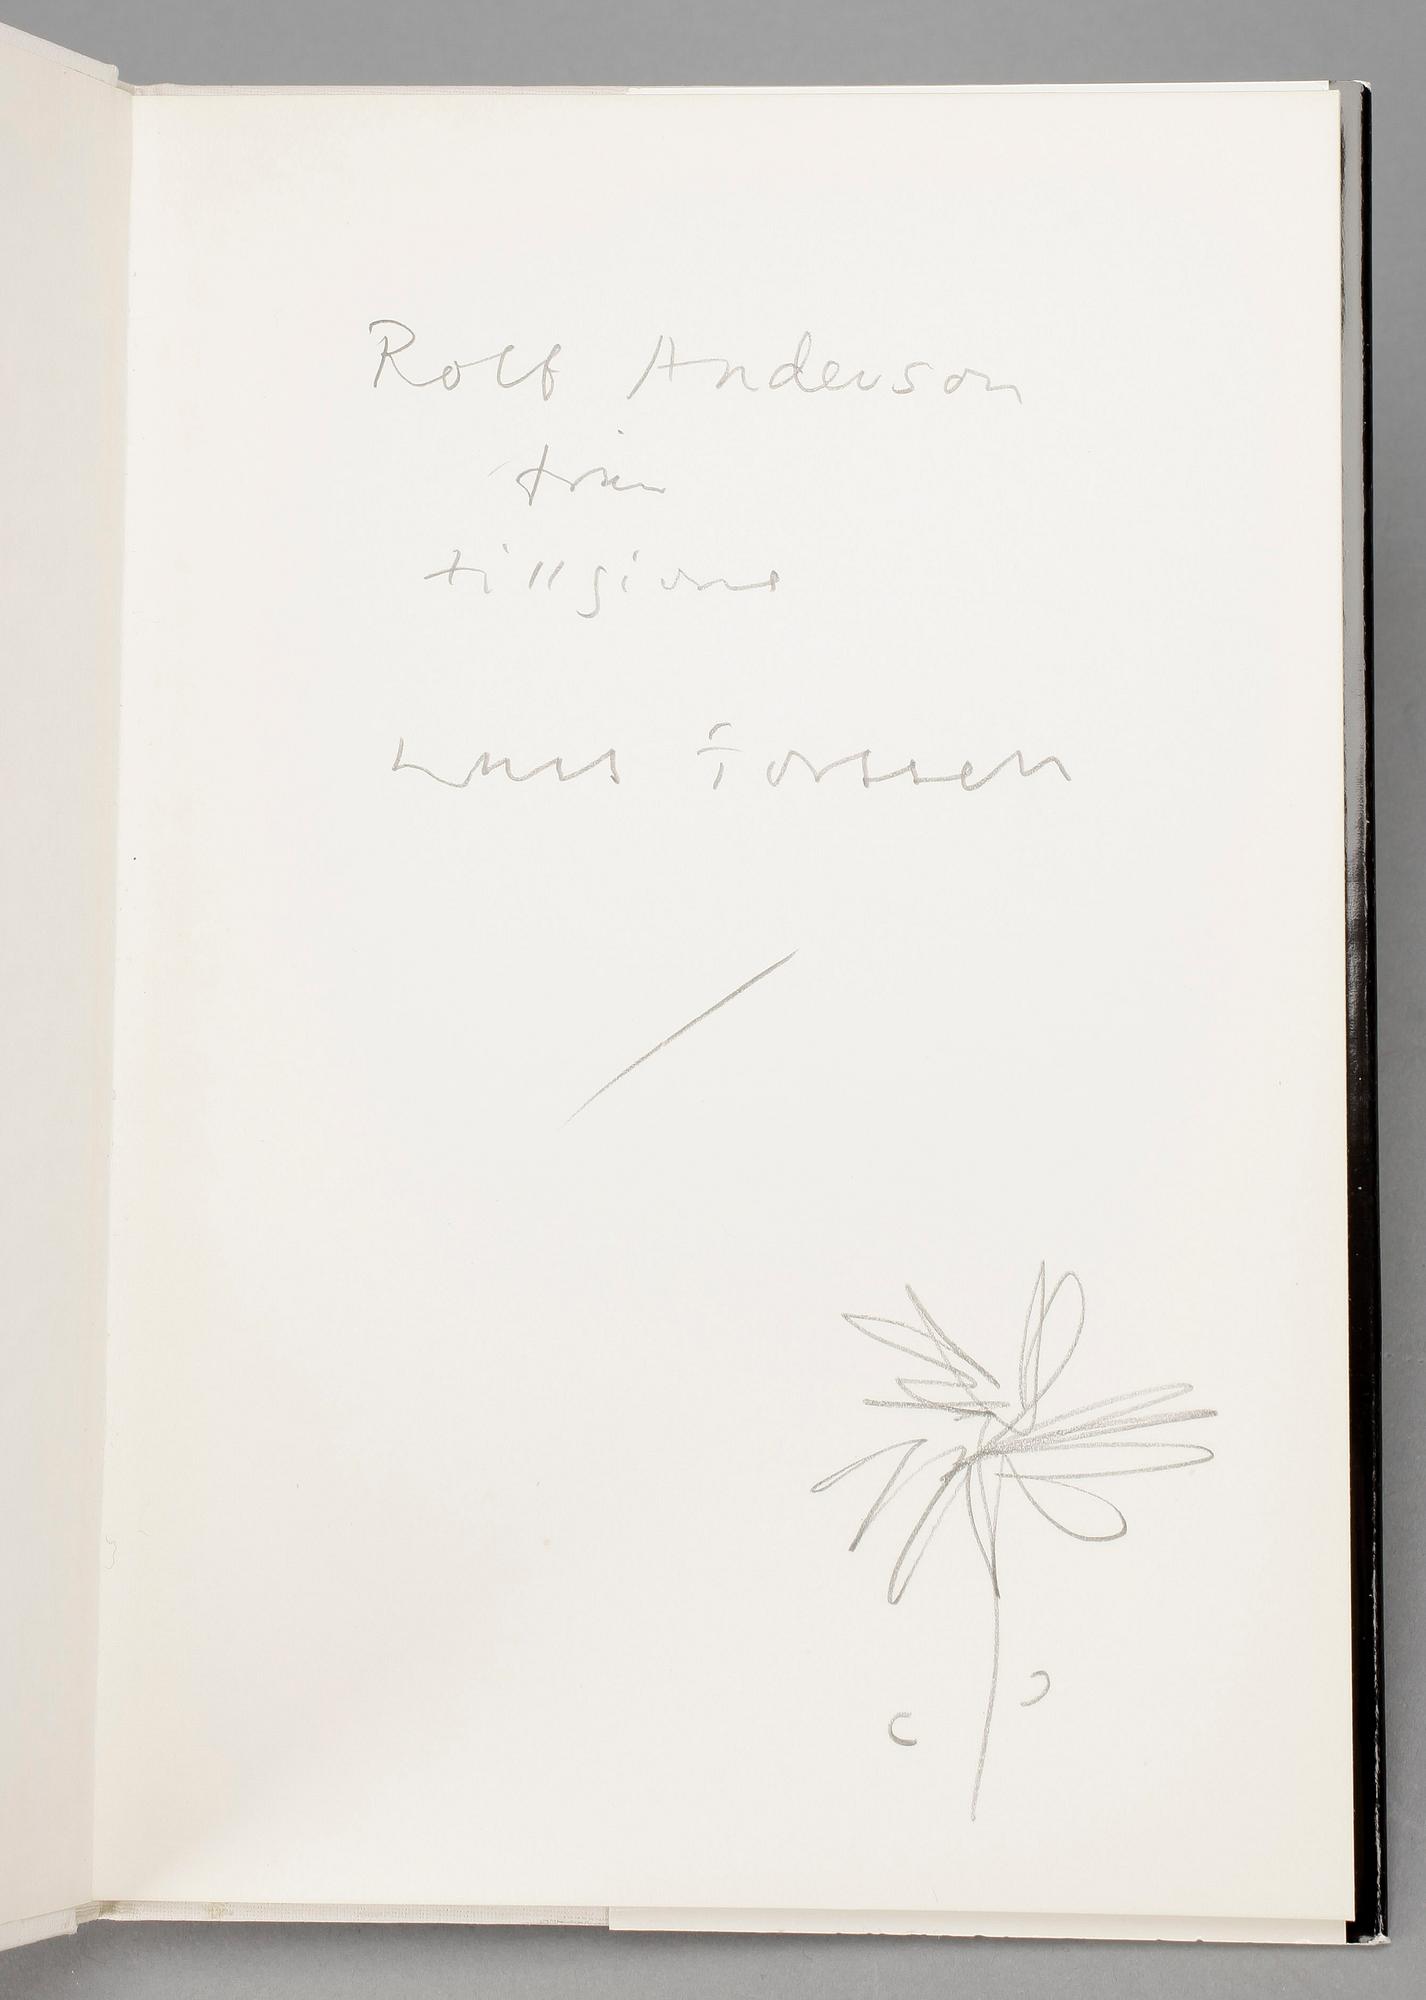 Rolf Anderson
från
tillgivne
Lars Forssell